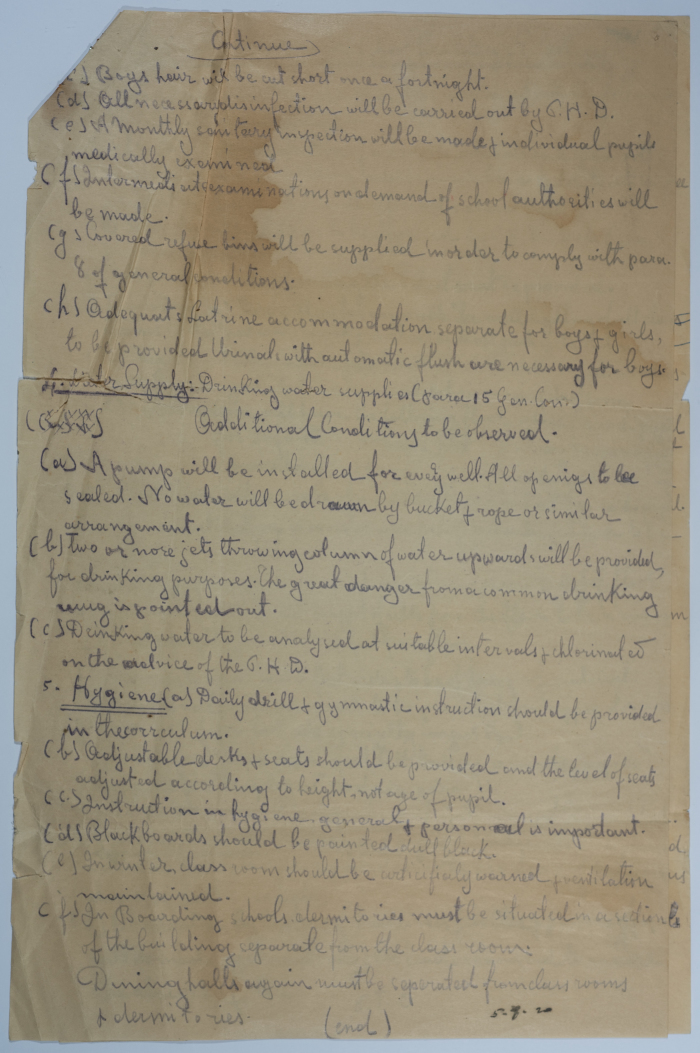 Contineue
(c) Boys hair will be cut short once a fortnight.
(d) All necessary disinfection will be carried out by P. H. D.
(e) A Monthly sanitary inspection will be made & individual pupils
medically examined
(f) Intermediate examinations on demand of school authorities will
be made.
(g) Covered refuse bins will be supplied in order to comply with para.
8 of general conditions.
(h) Adequate Latrine accommodation separate for boys & girls,
to be provided Urinals with automatic flush are necessary for boys.
4. Water Supply: Drinking water supplies (para 15 Gen. Con)
Additional Conditions to be observed.
(a) A pump will be installed for every well. All openigs to be
sealed. No water will be drawn by bucket & rope or similar
arrangement.
(b) Two or more jets throwing column of water upwards will be provided,
for drinking purposes. The great danger from a common drinking
mug is pointed out.
(c) Drinking water to be analysed at suitable intervals & chlorinated
on the advice of the P. H. D.
5. Hygiene (a) Daily drill & gymnastic instruction should be provided
in the corriculum.
(b) Adjustable desks & seats should be provided and the level of seats
adjusted according to height, not age of pupil.
(c) Instruction in hygiene, general & personal is important.
(d) Blackboards should be painted dull black.
(e) In winter, class room should be artificialy warned & ventilation
maintained.
(f) In Boarding schools, dermitories must be situated in a section
of the building separate from the class room.
Dining halls again must be seperated from class rooms
& dermitories. (end) 5.7.20